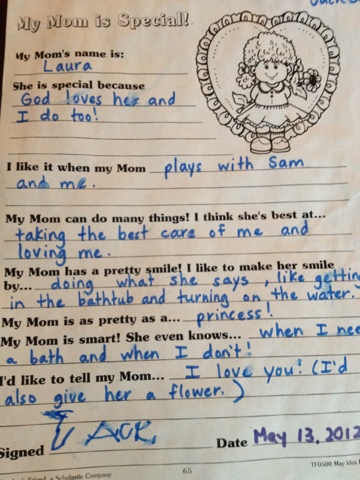 My Mom is Special!
My Mom's name is:
Laura
She is special because
God loves her and
I do too!
I like it when my Mom plays with Sam
and me.
My Mom can do many things! I think she's best at...
taking the best care of me and
loving me.
My Mom has a pretty smile! I like to make her smile
by... doing what she says, like getting
in the bathtub and turning on the water.
My Mom is as pretty as a... princess!
My Mom is smart! She even knows... when I nee
a bath and when I don't!
I'd like to tell my Mom... I love you? (I'd
also give her a flower.)
Signed JACK Date May 13, 2012
Friend, a Scholastic Company
65
TF0500 May Idea